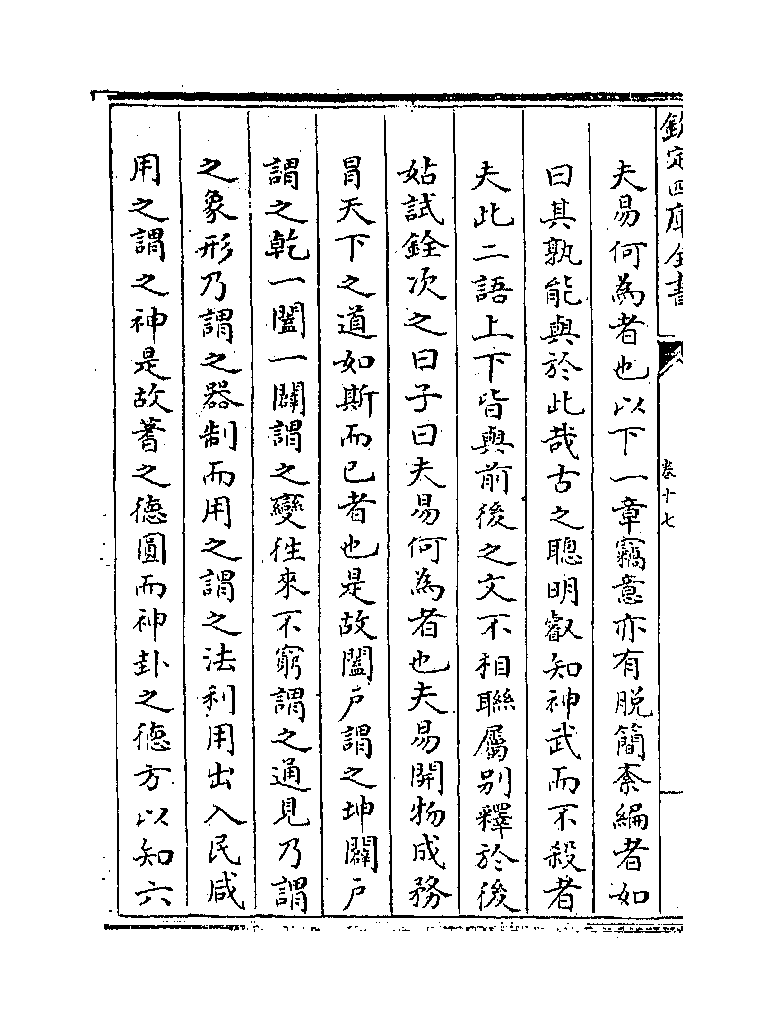 欽定四庫全書
卷十七
夫易何為者也以下一章竊意亦有脫簡紊編者如
曰其孰能與於此哉古之聰明叡知神武而不殺者
夫此二語上下皆與前後之文不相聯屬别釋於後
姑試銓次之曰子曰夫易何為者也夫易開物成務
冒天下之道如斯而已者也是故闔戶謂之坤闢戶
謂之乾一闔一闢謂之變徃來不窮謂之通見乃謂
之象形乃謂之器制而用之謂之法利用出入民咸
用之謂之神是故蓍之德圓而神卦之德方以知六